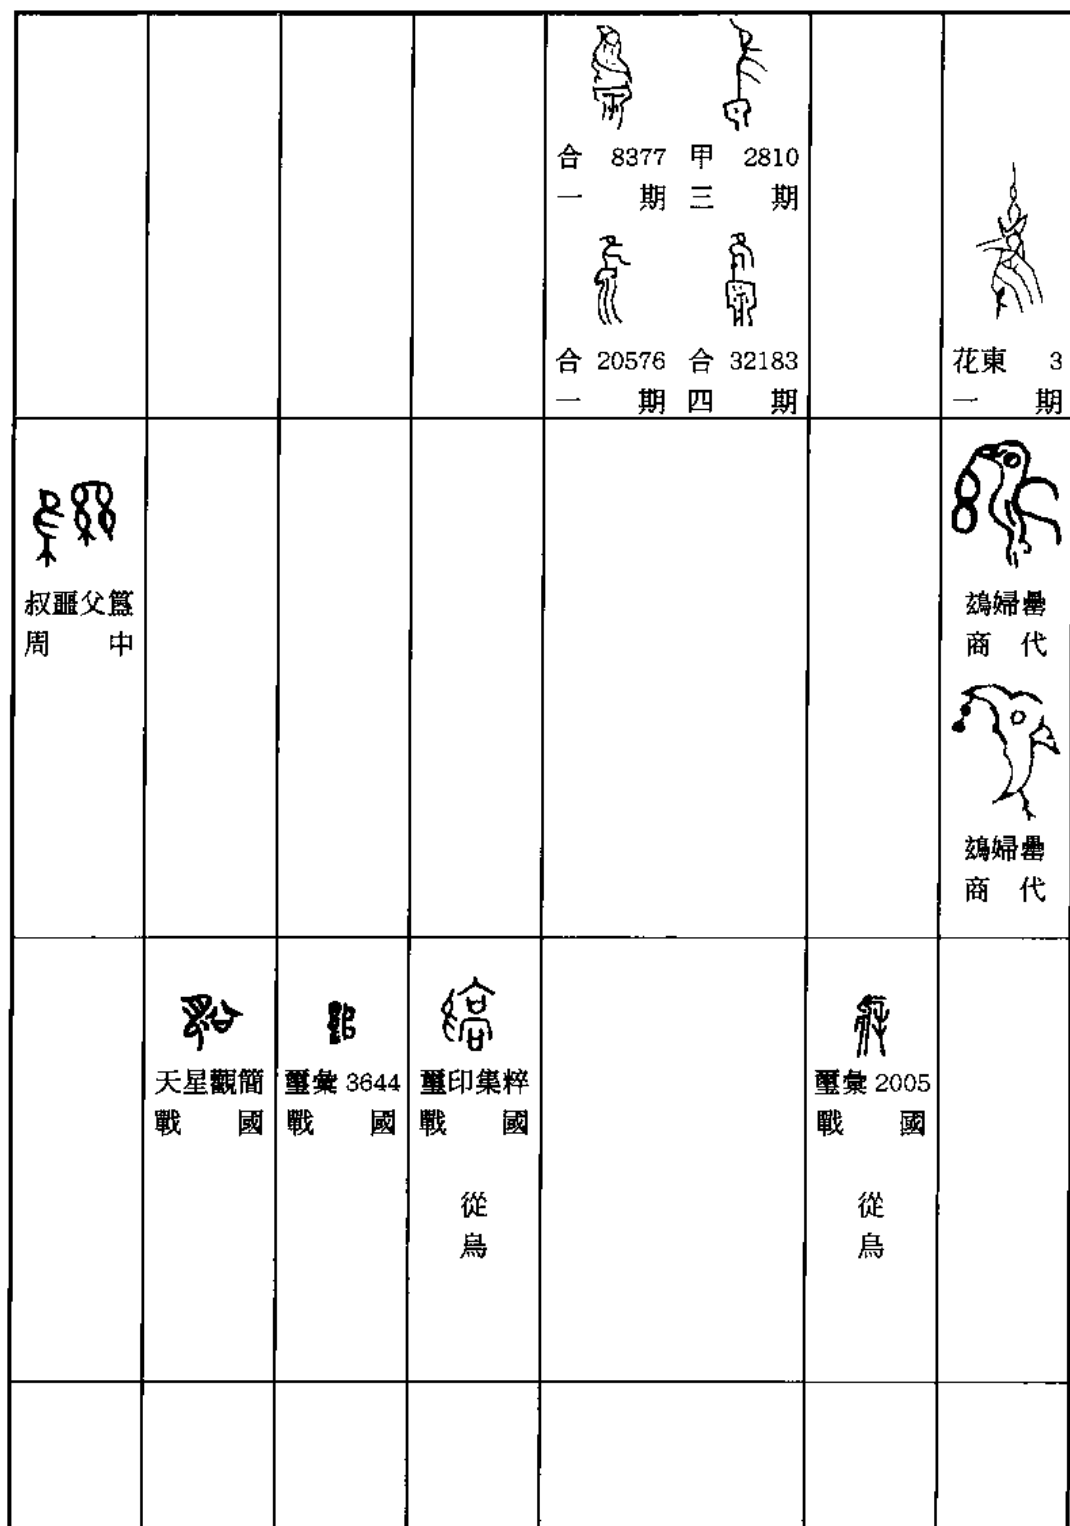 合 8377
一期
甲 2810
三期
合 20576
一期
合 32183
四期
花東 3
一期
叔噩父簋
周中
鷀婦罍
商代
鷀婦罍
商代
天星觀簡
戰國
璽彙 3644
戰國
璽印集粹
戰國
從鳥
璽彙 2005
戰國
從鳥